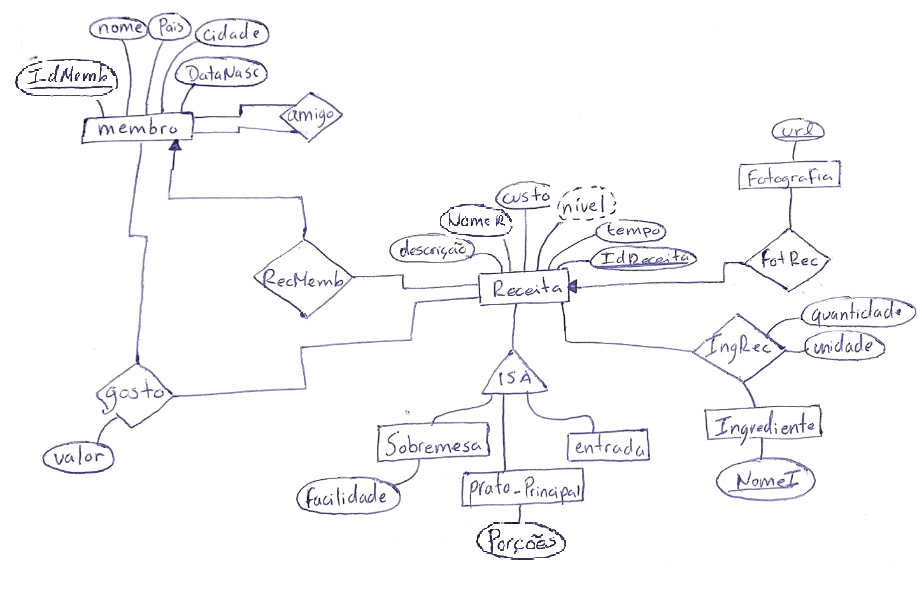 nome
Pais
cidade
IdMemb
DataNasc
membro
amigo
url
Fotografia
custo
nível
NomeR
tempo
descrição
IdReceita
FotRec
RecMemb
Receita
quantidade
IngRec
unidade
ISA
gosto
Ingrediente
Sobremesa
entrada
valor
NomeI
facilidade
prato_Principal
Porções